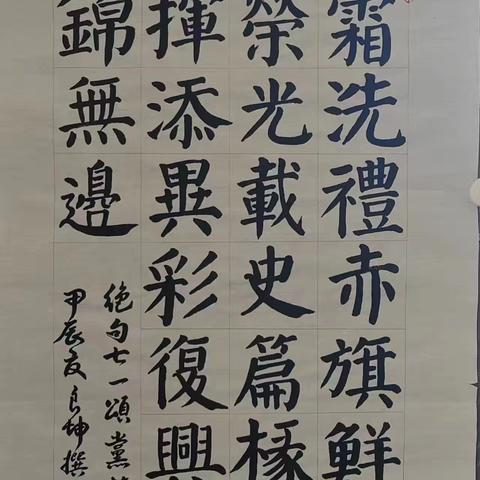 霜洗禮赤旗鮮
榮光載史篇椽
揮添異彩復興
錦無邊
絕句七一頌黨
甲辰夏良坤撰